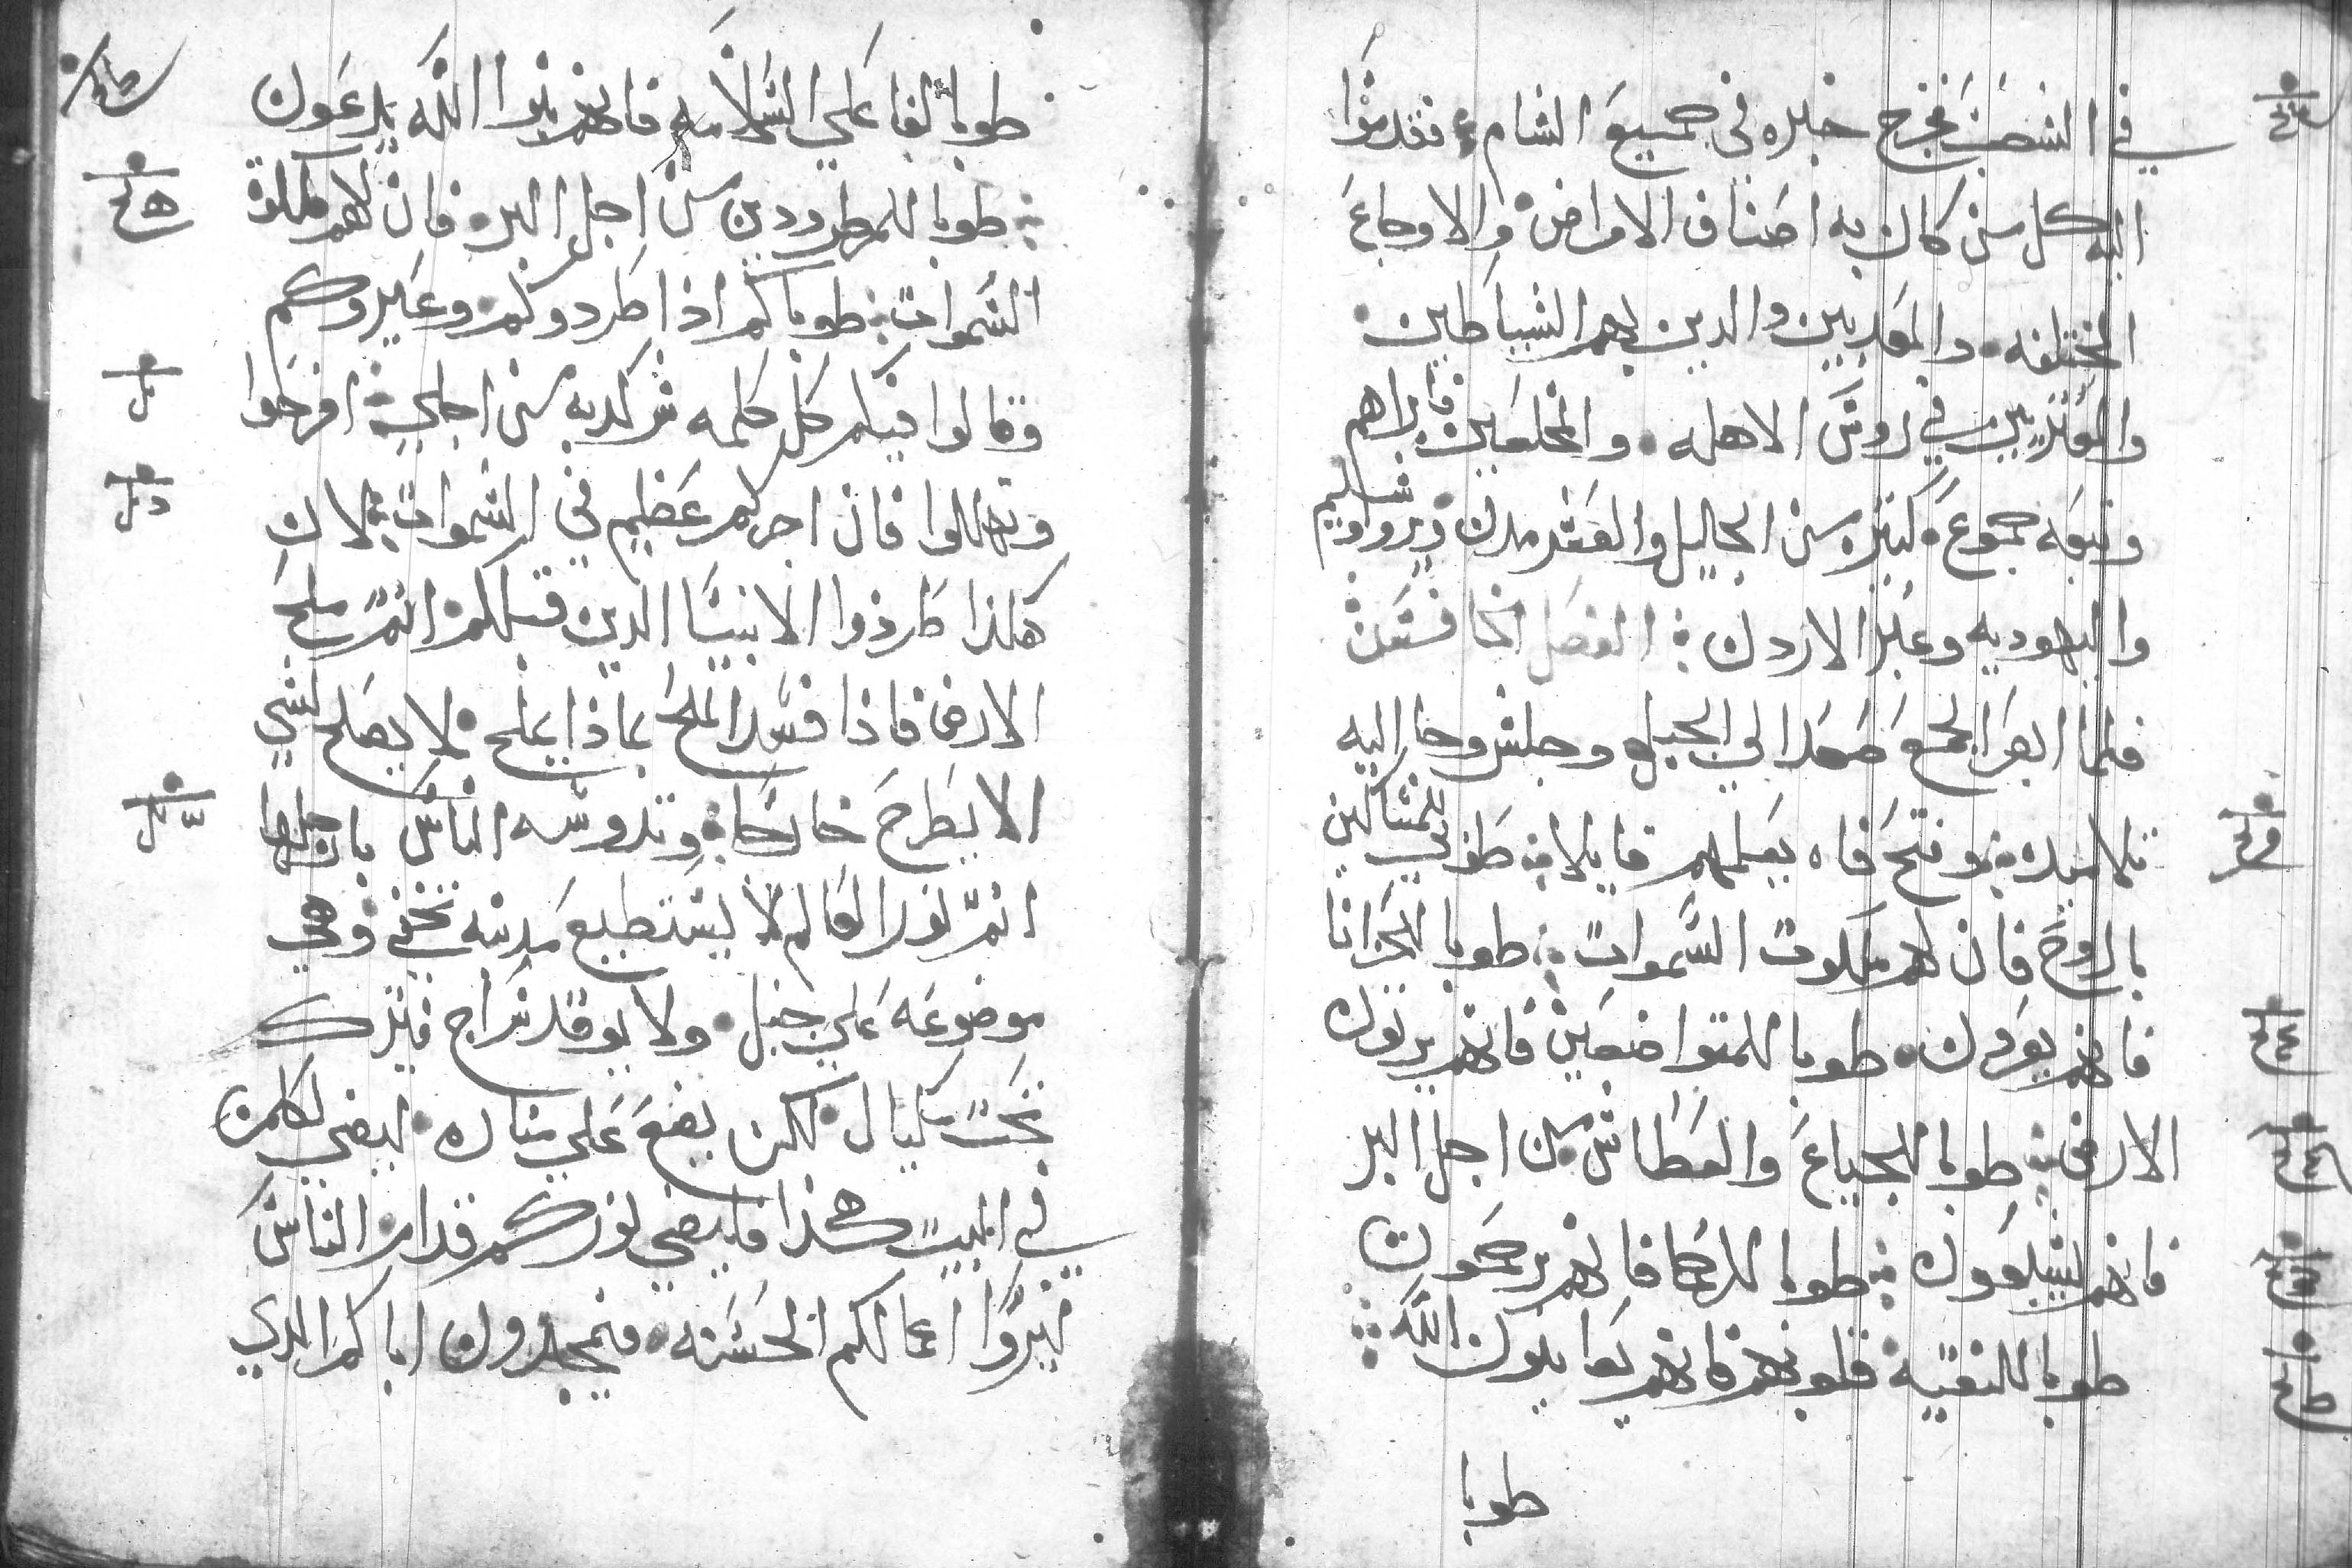 في الشعب فخرج خبره في جميع الشام فقدموا
اليه كل من كان به اصناف الامراض والاوجاع
المختلفه والمعدبين والدين بهم الشياطين
والمعتريين في روس الاهله والمخلعين فابراهم
وتبعه جموع كتيره من الجليل والعشر مدن ويروشليم
واليهوديه وعبر الاردن الفصل الخامس
فلما ابصر الجمع صعد الي الجبل وجلس وجا اليه
تلاميده وفتح فاه يعلمهم قايلا طوبي للمساكين
بالروح فان لهم ملكوت السموات طوبا للحزانا
فانهم يعزون طوبا للمتواضعين فانهم يرتون
الارض طوبا للجياع والعطاش من اجل البر
فانهم يشبعون طوبا للرحما فانهم يرحمون
طوبا للنقيه قلوبهم فانهم يعاينون الله
طوبا
طوبا لفاعلي السلامه فانهم بنوا الله يدعون
طوبا للمطرودين من اجل البر فان لهم ملكوة
السموات طوباكم ادا طردوكم وعيروكم
وقالوا فيكم كل كلمه شر كدبه من اجلي افرحوا
وتهللوا فان اجركم عظيم في السموات لان
هكذا طردوا الانبيا الدين قبلكم انتم ملح
الارض فاذا فسد الملح بماذا يملح لا يصلح لشي
الا يطرح خارجا وتدوسه الناس بارجلها
انتم نور العالم لا يستطيع مدينه تخفي وهي
موضوعه علي جبل ولا يوقد سراج فيترك
تحت مكيال لكن يضع علي مناره ليضي لكلمن
في البيت هكذا فليضي نوركم قدام الناس
ليروا اعمالكم الحسنه فيمجدون اباكم الدي